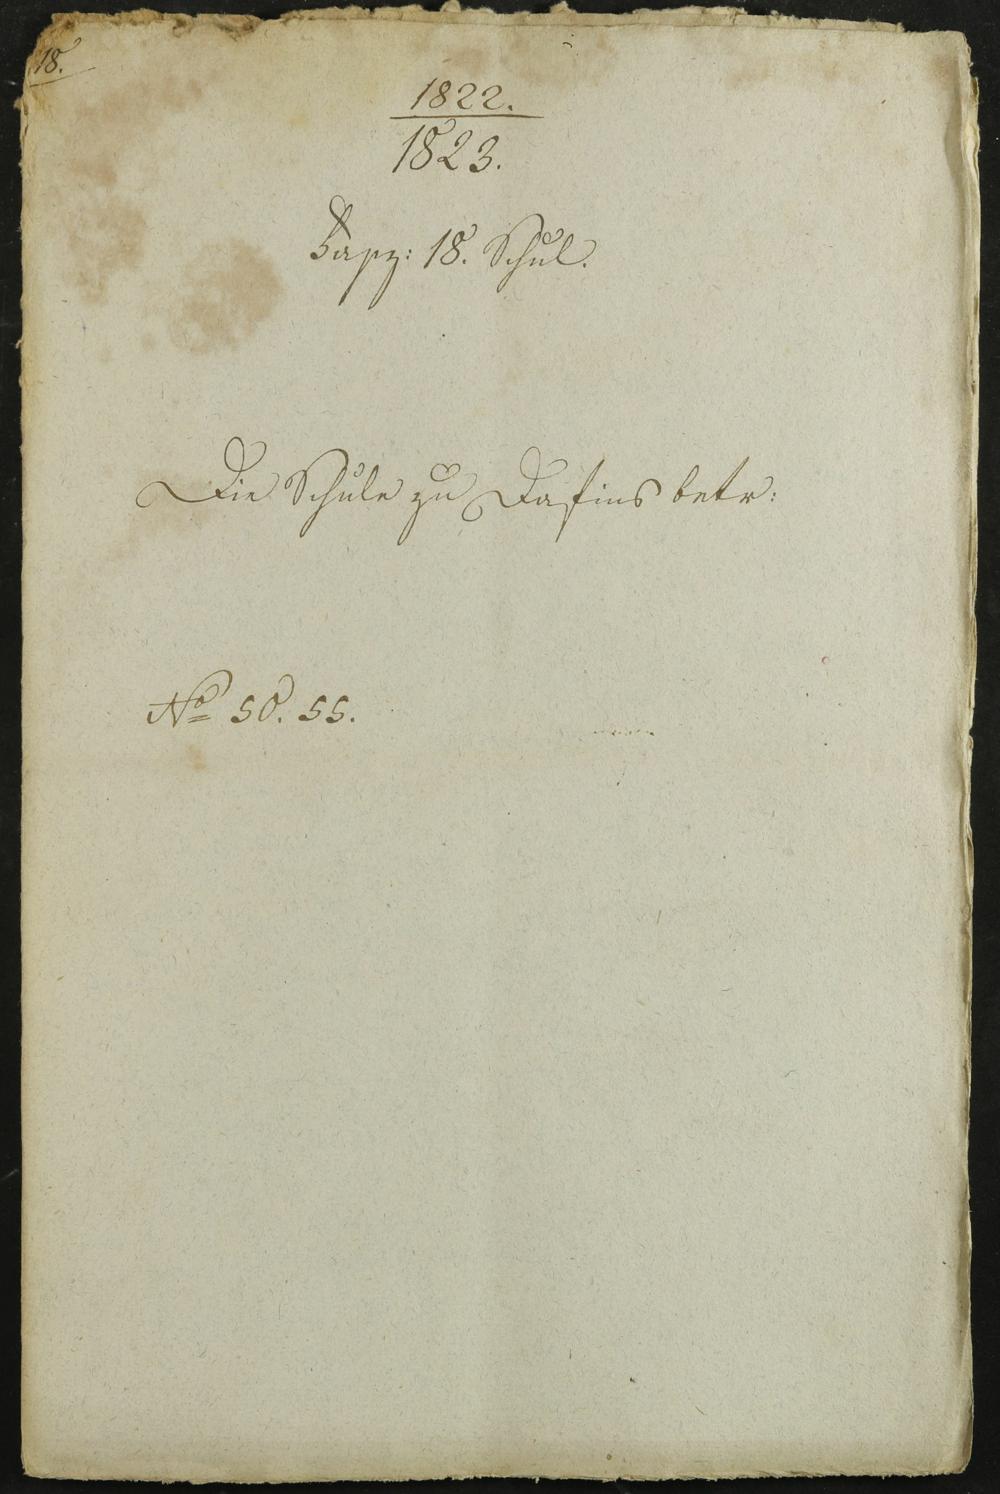 18.
1822.
1823.
Fasz: 18. Schul.
Die Schule zu Dafins betr:
No 50. 55.